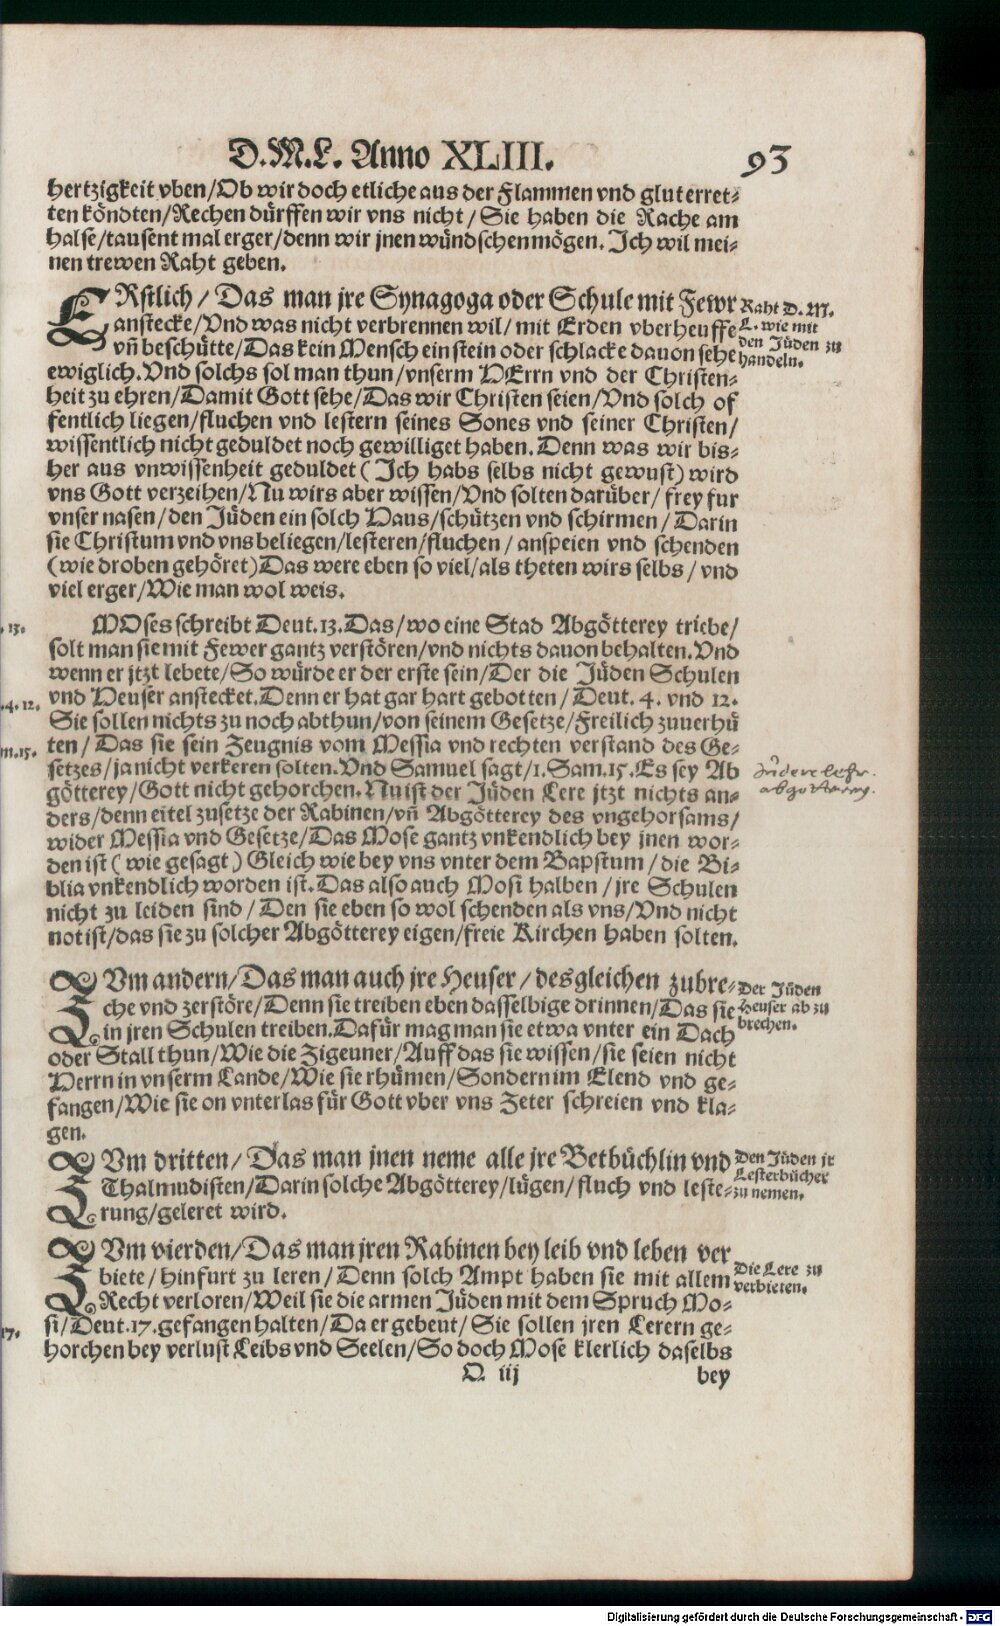 D.M.L. Anno XLIII. 93
hertzigkeit vben/Ob wir doch etliche aus der Flammen vnd glut erret⸗
ten köndten/Rechen dürffen wir vns nicht/Sie haben die Rache am
halse/tausent mal erger/denn wir jnen wündschen mögen. Ich wil mei⸗
nen trewen Raht geben.
ERstlich/Das man jre Synagoga oder Schule mit Fewr
anstecke/Vnd was nicht verbrennen wil/mit Erden vberheuffe
vn̄ beschütte/Das kein Mensch ein stein oder schlacke dauon sehe
ewiglich.Vnd solchs sol man thun/vnserm HErrn vnd der Christen⸗
heit zu ehren/Damit Gott sehe/Das wir Christen seien/Vnd solch of
fentlich liegen/fluchen vnd lestern seines Sones vnd seiner Christen/
wissentlich nicht geduldet noch gewilliget haben. Denn was wir bis⸗
her aus vnwissenheit geduldet (Ich habs selbs nicht gewust) wird
vns Gott verzeihen/Nu wirs aber wissen/Vnd solten darüber/frey fur
vnser nasen/den Jüden ein solch Haus/schützen vnd schirmen/Darin
sie Christum vnd vns beliegen/lesteren/fluchen/anspeien vnd schenden
(wie droben gehöret) Das were eben so viel/als theten wirs selbs/vnd
viel erger/Wie man wol weis.
Raht D. M.
L. wie mit
den Jüden zu
handeln.
MOses schreibt Deut.13.Das/wo eine Stad Abgötterey triebe/
solt man sie mit Fewer gantz verstören/vnd nichts dauon behalten.Vnd
wenn er jtzt lebete/So würde er der erste sein/Der die Jüden Schulen
vnd Heuser anstecket.Denn er hat gar hart gebotten/Deut. 4. vnd 12.
Sie sollen nichts zu noch abthun/von seinem Gesetze/Freilich zuuerhü
ten/Das sie sein Zeugnis vom Messia vnd rechten verstand des Ge⸗
setzes/ja nicht verkeren solten.Vnd Samuel sagt/1.Sam.15.Es sey Ab
götterey/Gott nicht gehorchen.Nu ist der Jüden Lere jtzt nichts an⸗
ders/denn eitel zusetze der Rabinen/vn̄ Abgötterey des vngehorsams/
wider Messia vnd Gesetze/Das Mose gantz vnkendlich bey jnen wor⸗
den ist (wie gesagt) Gleich wie bey vns vnter dem Bapstum/die Bi⸗
blia vnkendlich worden ist.Das also auch Mosi halben/jre Schulen
nicht zu leiden sind/Den sie eben so wol schenden als vns/Vnd nicht
not ist/das sie zu solcher Abgötterey eigen/freie Kirchen haben solten.
. 13.
.4. 12.
m.15.
abgötterey.
ZVm andern/Das man auch jre Heuser/desgleichen zubre⸗
che vnd zerstöre/Denn sie treiben eben dasselbige drinnen/Das sie
in jren Schulen treiben.Dafür mag man sie etwa vnter ein Dach
oder Stall thun/Wie die Zigeuner/Auff das sie wissen/sie seien nicht
Herrn in vnserm Lande/Wie sie rhümen/Sondern im Elend vnd ge⸗
fangen/Wie sie on vnterlas für Gott vber vns Zeter schreien vnd kla⸗
gen.
Der Jüden
Heuser ab zu
brechen.
ZVm dritten/Das man jnen neme alle jre Betbüchlin vnd
Thalmudisten/Darin solche Abgötterey/lügen/fluch vnd leste⸗
rung/geleret wird.
Den Jüden jr
Lesterbücher
zu nemen.
ZVm vierden/Das man jren Rabinen bey leib vnd leben ver
biete/hinfurt zu leren/Denn solch Ampt haben sie mit allem
Recht verloren/Weil sie die armen Jüden mit dem Spruch Mo⸗
si/Deut.17.gefangen halten/Da er gebeut/Sie sollen jren Lerern ge⸗
horchen bey verlust Leibs vnd Seelen/So doch Mose klerlich daselbs
Die Lere zu
verbieten.
17.
O iij bey
Digitalisierung gefördert durch die Deutsche Forschungsgemeinschaft - DFG